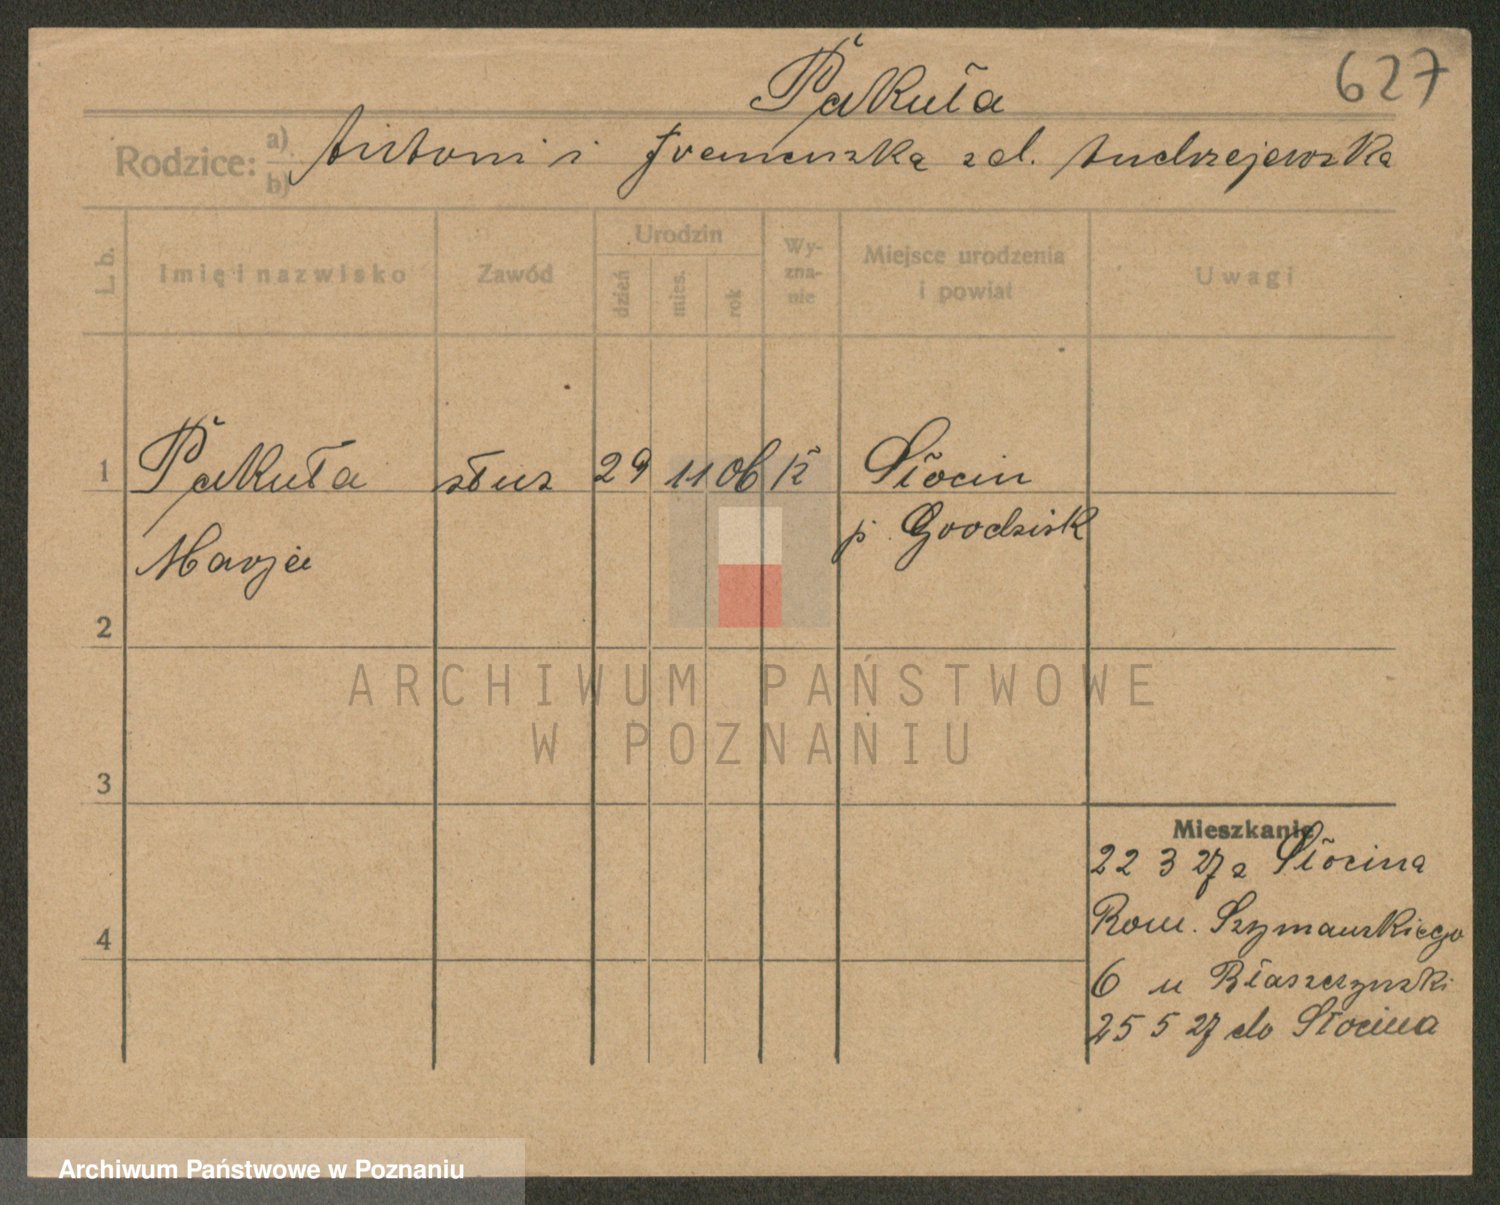 627
Pakuła
Rodzice: a) b) Antoni i Franciszka z d. Andrzejewska
L. b. Imię i nazwisko Zawód Urodzin dzień mies. rok Wy-zna-nie Miejsce urodzenia i powiat Uwagi
1 Pakuła służ 29 11 06 k Słocin
Marja p. Grodzisk
2
ARCHIWUM PAŃSTWOWE
W POZNANIU
3
Mieszkanie
22 3 27 z Słocina
Rom. Szymańskiego
4
6 u Błaszczyński
25 5 27 do Słocina
Archiwum Państwowe w Poznaniu